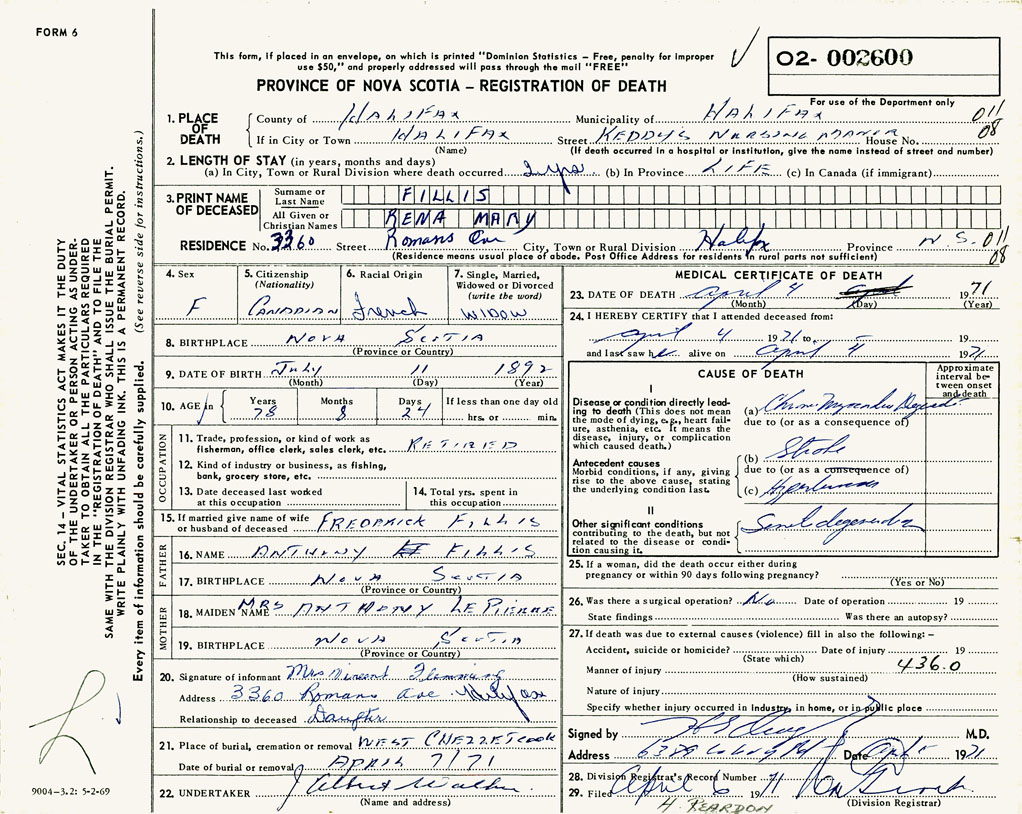 FORM 6
This form, if placed in an envelope, on which is printed "Dominion Statistics – Free, penalty for improper
use $50," and properly addressed will pass through the mail "FREE"
O2- 002600
PROVINCE OF NOVA SCOTIA – REGISTRATION OF DEATH
For use of the Department only
1. PLACE OF DEATH
County of HALIFAX Municipality of HALIFAX 011
If in City or Town HALIFAX Street KEDDY'S NURSING MANOR House No. 08
(Name) (If death occurred in a hospital or institution, give the name instead of street and number)
2. LENGTH OF STAY (in years, months and days)
(a) In City, Town or Rural Division where death occurred (b) In Province LIFE (c) In Canada (if immigrant)
3. PRINT NAME OF DECEASED
Surname or Last Name FILLIS
All Given or Christian Names RENA MARY
RESIDENCE No. 3360 Street Romans Ave City, Town or Rural Division Halifax Province N.S. 011
(Residence means usual place of abode. Post Office Address for residents in rural parts not sufficient) 08
4. Sex F
5. Citizenship (Nationality) CANADIAN
6. Racial Origin French
7. Single, Married, Widowed or Divorced (write the word) WIDOW
8. BIRTHPLACE NOVA SCOTIA
(Province or Country)
9. DATE OF BIRTH July 11 1892
(Month) (Day) (Year)
10. AGE in Years 78 Months 8 Days 24 If less than one day old hrs. or min.
OCCUPATION
11. Trade, profession, or kind of work as fisherman, office clerk, sales clerk, etc. RETIRED
12. Kind of industry or business, as fishing, bank, grocery store, etc.
13. Date deceased last worked at this occupation
14. Total yrs. spent in this occupation
15. If married give name of wife or husband of deceased FREDRICK FILLIS
FATHER
16. NAME ANTHONY FILLIS
17. BIRTHPLACE NOVA SCOTIA
(Province or Country)
MOTHER
18. MAIDEN NAME MRS ANTHONY LE PIERRE
19. BIRTHPLACE NOVA SCOTIA
(Province or Country)
20. Signature of informant Mrs Vincent Flemming
Address 3360 Romans Ave Halifax
Relationship to deceased Daughter
21. Place of burial, cremation or removal WEST CHEZZETCOOK
Date of burial or removal APRIL 7/71
22. UNDERTAKER Albert Walker
(Name and address)
MEDICAL CERTIFICATE OF DEATH
23. DATE OF DEATH April 4 1971
(Month) (Day) (Year)
24. I HEREBY CERTIFY that I attended deceased from:
April 4 1971 to 19
and last saw her alive on April 4 1971
CAUSE OF DEATH
Approximate interval between onset and death
I
Disease or condition directly leading to death (This does not mean the mode of dying, e.g., heart failure, asthenia, etc. It means the disease, injury, or complication which caused death.)
(a)
due to (or as a consequence of)
Antecedent causes
Morbid conditions, if any, giving rise to the above cause, stating the underlying condition last.
(b) Stroke
due to (or as a consequence of)
(c) Hypertension
II
Other significant conditions contributing to the death, but not related to the disease or condition causing it.
Senile degeneration
25. If a woman, did the death occur either during pregnancy or within 90 days following pregnancy?
(Yes or No)
26. Was there a surgical operation? No Date of operation 19
State findings Was there an autopsy?
27. If death was due to external causes (violence) fill in also the following: –
Accident, suicide or homicide? Date of injury 19
(State which)
Manner of injury 436.0
(How sustained)
Nature of injury
Specify whether injury occurred in industry, in home, or in public place
Signed by M.D.
Address Date April 1971
28. Division Registrar's Record Number
29. Filed April 6 1971
(Division Registrar)
H. REARDON
SEC. 14 – VITAL STATISTICS ACT MAKES IT THE DUTY
OF THE UNDERTAKER OR PERSON ACTING AS UNDER-
TAKER TO OBTAIN ALL THE PARTICULARS REQUIRED
IN THE "REGISTRATION OF DEATH" AND TO FILE THE
SAME WITH THE DIVISION REGISTRAR WHO SHALL ISSUE THE BURIAL PERMIT.
WRITE PLAINLY WITH UNFADING INK. THIS IS A PERMANENT RECORD.
Every item of information should be carefully supplied. (See reverse side for instructions.)
9004-3.2: 5-2-69